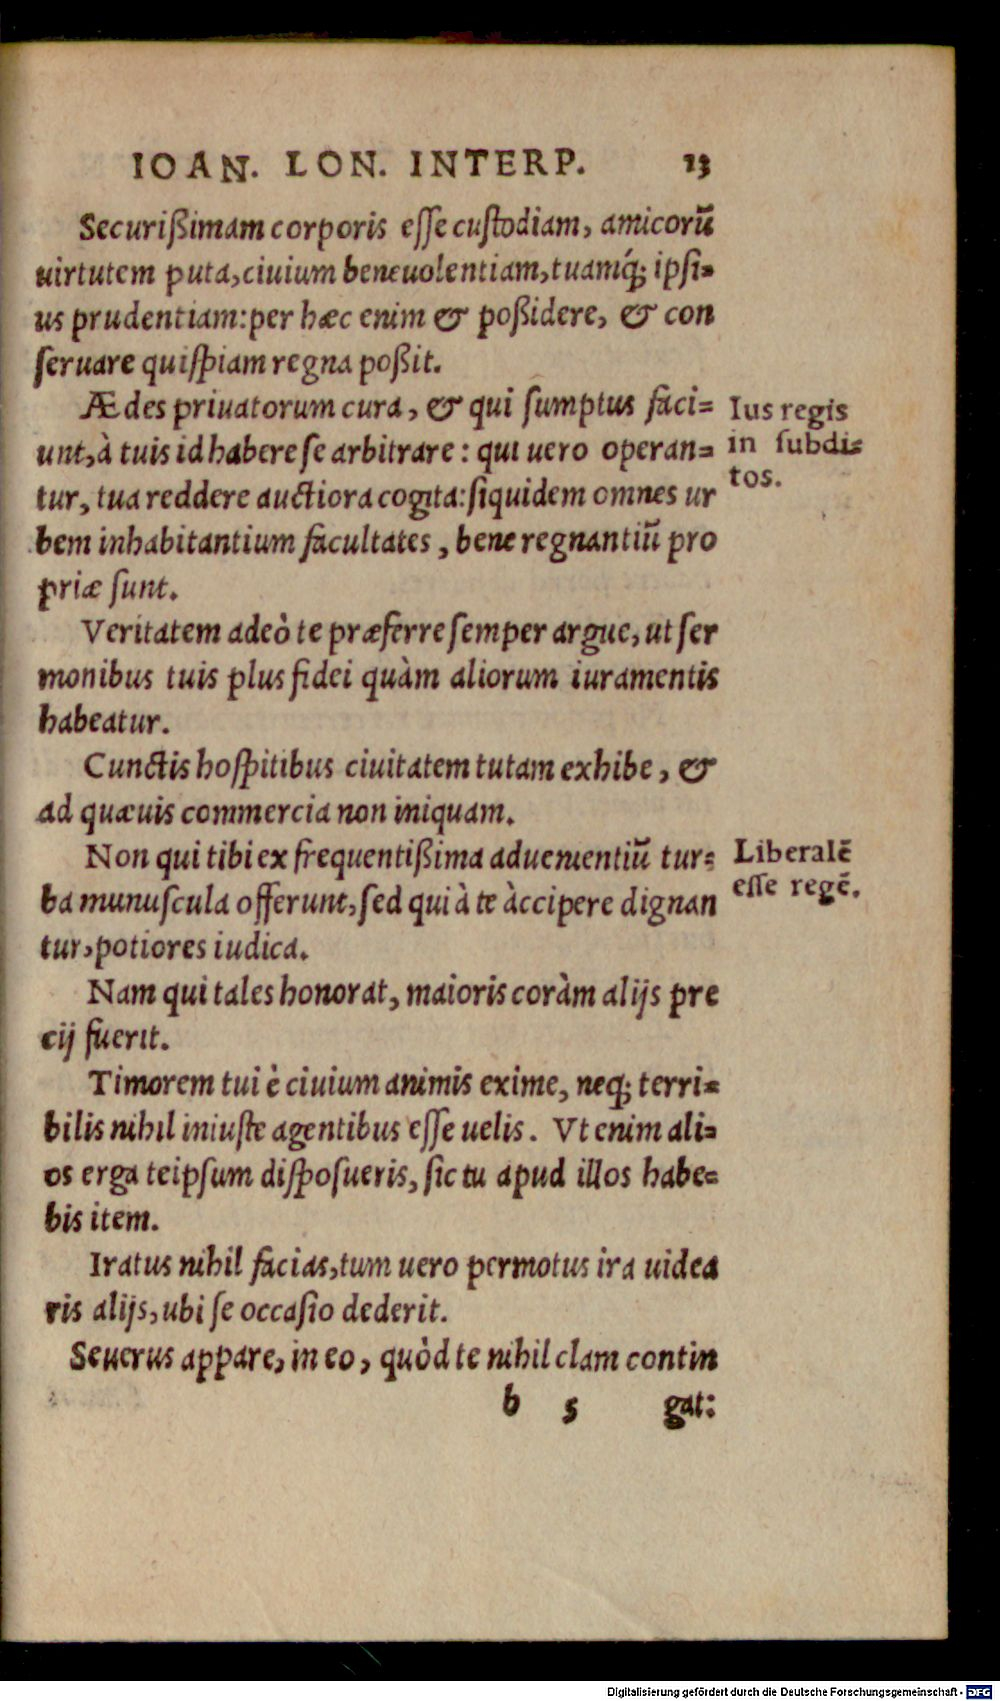 IOAN. LON. INTERP. 13
Securißimam corporis eſſe cuſtodiam, amicorū
uirtutem puta, ciuium beneuolentiam, tuamq́; ipſi-
us prudentiam: per hæc enim & poßidere, & con
ſeruare quiſpiam regna poßit.
Ædes priuatorum cura, & qui ſumptus faci-
unt, à tuis id habere ſe arbitrare: qui uero operan-
tur, tua reddere auctiora cogita: ſiquidem omnes ur
bem inhabitantium facultates, bene regnantiū pro
priæ ſunt.
Ius regis
in ſubdi-
tos.
Veritatem adeò te præferre ſemper argue, ut ſer
monibus tuis plus fidei quàm aliorum iuramentis
habeatur.
Cunctis hoſpitibus ciuitatem tutam exhibe, &
ad quæuis commercia non iniquam.
Non qui tibi ex frequentißima aduenientiū tur-
ba munuſcula offerunt, ſed qui à te àccipere dignan
tur, potiores iudica.
Liberalē
eſſe regē.
Nam qui tales honorat, maioris coràm alijs pre
cij fuerit.
Timorem tui è ciuium animis exime, neq; terri-
bilis nihil iniuſte agentibus eſſe uelis. Vt enim ali-
os erga teipſum diſpoſueris, ſic tu apud illos habe-
bis item.
Iratus nihil facias, tum uero permotus ira uidea
ris alijs, ubi ſe occaſio dederit.
Seuerus appare, in eo, quòd te nihil clam contin
b 5 gat:
Digitalisierung gefördert durch die Deutsche Forschungsgemeinschaft - DFG